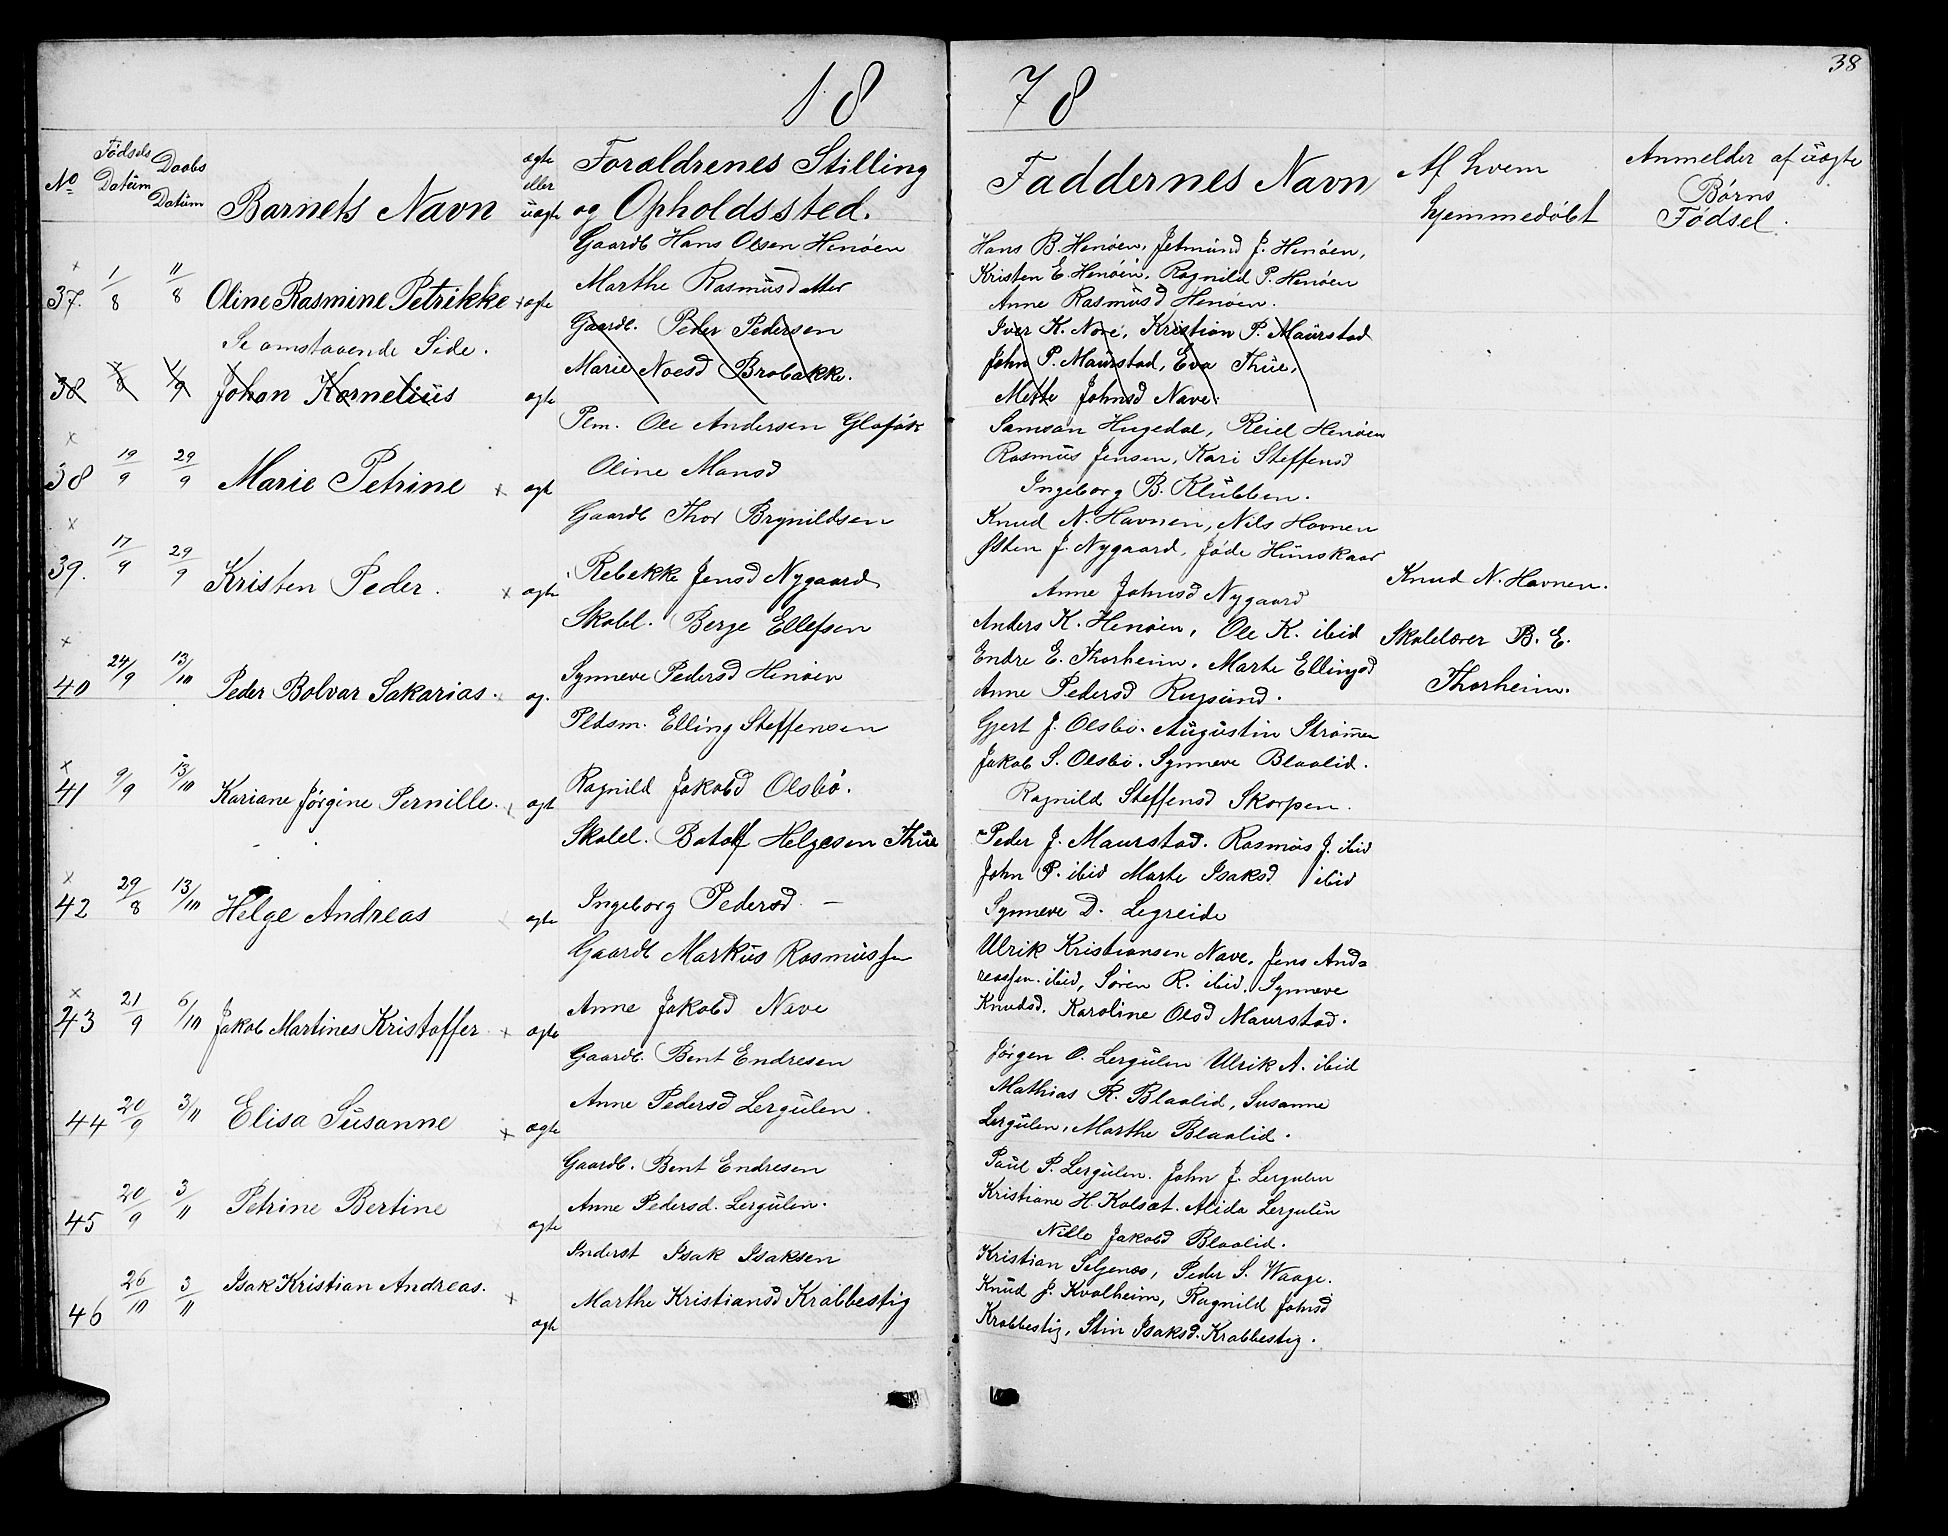 1878
38
No
Fødsels Datum
Daabs Datum
Barnets Navn
ægte eller uægte
Forældrenes Stilling
og Opholdssted.
Faddernes Navn
Af hvem
hjemmedøbt
Anmelder af uægte
Børns
Fødsel.
37. 1/8 11/8 Oline Rasmine Petrikke ægte
Gaardb Hans Olsen Henøen
Marthe Rasmusdatter
Hans B. Henøen, Jetmund J. Henøen,
Kristen E. Henøen, Ragnild P. Henøen
Anne Rasmusd Henøen.
Se omstaaende Side.
38 Johan Kornelius ægte
Gaardb. Peder Pedersen
Marie Noesd Brobakke.
Iver K. Nore, Kristian P. Maurstad
John P. Maurstad, Eva Thue,
Mette Johnsd Nave.
38 19/9 29/9 Marie Petrine ægte
Plm. Ole Andersen
Oline Monsd
Samson Hugedal, Reiel Henøen
Rasmus Jensen, Kari Steffensd
Ingeborg B. Klubben.
39. 17/9 29/9 Kristen Peder. ægte
Gaardb Thor Brynildsen
Rebekke Jensd Nygaard
Knud N. Havnen, Nils Havnen
Østen J. Nygaard, Jøde Hunskaar
Anne Johnsd Nygaard
Knud N. Havnen.
40 24/9 13/10 Peder Bolvar Sakarias. æg.
Skolel. Berge Ellefsen
Synneve Pedersd Henøen
Anders K. Henøen, Ole K. ibid
Endre E. Thorheim. Marte Ellingsd
Anne Pedersd Rugsund.
Skolelærer B. E.
Thorheim.
41 9/9 13/10 Kariane Jørgine Pernille. ægt
Pldsm. Elling Steffensen
Ragnild Jakobd Olsbø.
Gjert J. Olsbø. Augustin Strømen
Jakob S. Olsbø. Synneve Blaalid.
Ragnild Steffensd Skorpen.
42 29/8 13/10 Helge Andreas ægte
Skolel. Botolf Helgesen Thue
Ingeborg Pedersd. —
Peder J. Maurstad. Rasmus J. ibid
John P. ibid Marte Isaksd ibid
Synneve D. Legreide
43 21/9 6/10 Jakob Martines Kristoffer ægte
Gaardb Markus Rasmussen
Anne Jakobd Nave
Ulrik Kristiansen Nave, Jens And=
reassen ibid, Søren R. ibid. Synneve
Knudsd. Karoline Olsd Maurstad.
44 20/9 3/11 Elisa Susanne ægte
Gaardb. Bent Endresen
Anne Pedersd Lergulen.
Jørgen O. Lergulen Ulrik A. ibid
Mathias R. Blaalid, Susanne
Lergulen, Marthe Blaalid.
45 20/9 3/11 Petrine Bertine ægte
Gaardb. Bent Endresen
Anne Pedersd. Lergulen.
Paul P. Lergulen. John J. Lergulen
Kristiane H. Kolsæt. Alida Lergulen
Nille Jakobd Blaalid.
46 26/10 3/11 Isak Kristian Andreas. ægte
Inderst Isak Isaksen
Marthe Kristiansd Krabbestig
Kristian Seljenæs, Peder S. Waage.
Knud J. Kvalheim, Ragnild Johnsd
Krabbestig, Stin Isaksd. Krabbestig.